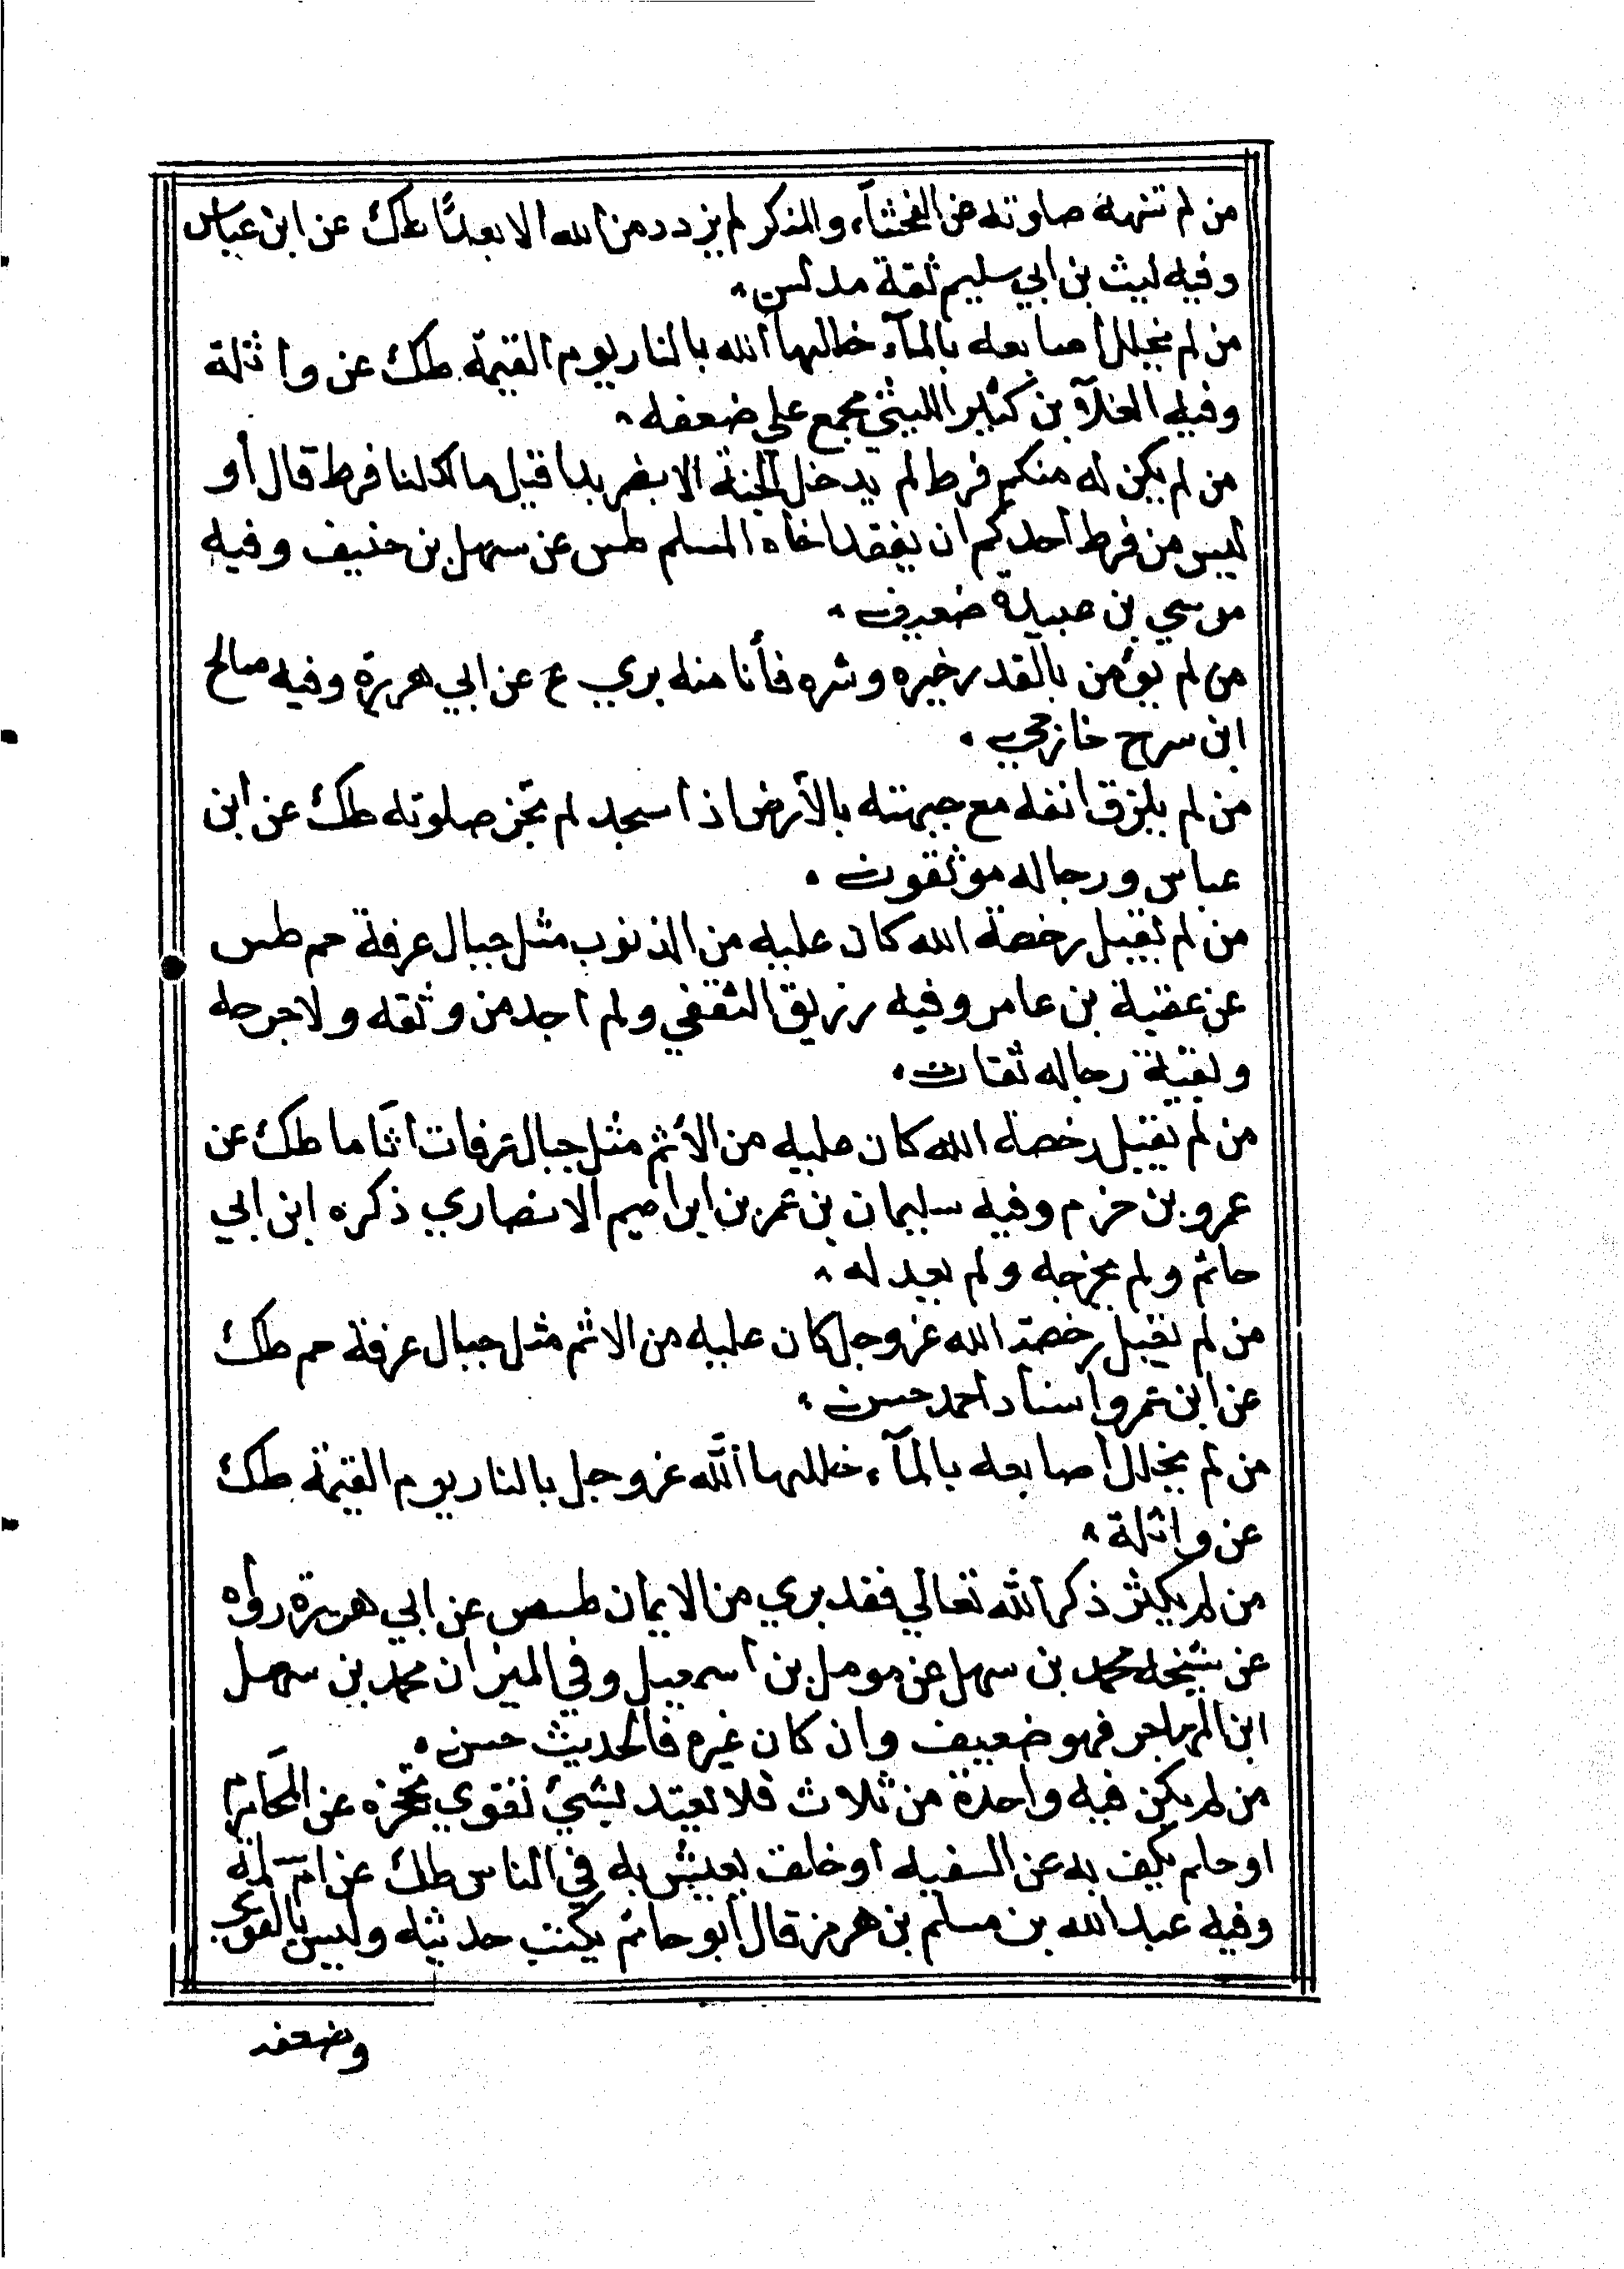 من لم تنهه صلوته عن الفحشآء والمنكر لم يزدد من الله الا بعدًا طك عن ابن عباس
وفيه ليث بن ابي سليم ثقة مدلس
من لم يخلل أصابعه بالمآء خللها الله بالنار يوم القيمة طك عن واثلة
وفيه العلآء بن كثير الليثي مجمع علي ضعفه
من لم يكن له منكم فرط لم يدخل الجنة الا بضريدا قيل ما لكلنا فرط قال أو
ليس من فرط أحدكم ان يفقد اخاه المسلم طس عن سهل بن حنيف وفيه
موسي بن عبيدة ضعيف
من لم يؤمن بالقدر خيره وشره فأنا منه بري ع عن ابي هريرة وفيه صالح
ابن سرح خارجي
من لم يلزق انفه مع جبهته بالأرض اذا سجد لم تجز صلوته طك عن ابن
عباس ورجاله موثقون
من لم يقبل رخصة الله كان عليه من الذنوب مثل جبال عرفة حم طس
عن عقبة بن عامر وفيه رزيق الثقفي ولم اجد من وثقه ولا جرحه
وبقية رجاله ثقات
من لم يقبل رخصة الله كان عليه من الأثم مثل جبال عرفات اثاما طك عن
عمرو بن حزم وفيه سليمان بن عمر بن ابراهيم الانصاري ذكره ابن ابي
حاتم ولم يخرجه ولم يعدله
من لم يقبل رخصة الله عز وجل كان عليه من الاثم مثل جبال عرفة حم طك
عن ابن عمر واسناد احمد حسن
من لم يخلل أصابعه بالمآء خللها اللَّه عز وجل بالنار يوم القيمة طك
عن واثلة
من لم يكثر ذكر الله تعالي فقد بري من الايمان طسص عن ابي هريرة رواه
عن شيخه محمد بن سهل عن مومل بن اسمعيل وفي الميزان محمد بن سهل
ابن المهاجر فهو ضعيف وان كان غيره فالحديث حسن
من لم يكن فيه واحدة من ثلاث فلا يعتد بشيئ تقوي تحجزه عن المحَارم
او حلم يكف به عن السفيه أو خلق يعيش به في الناس طك عن ام سلمة
وفيه عبد الله بن مسلم بن هرمز قال أبو حاتم يكتب حديثه وليس بالقوي
وضعفه